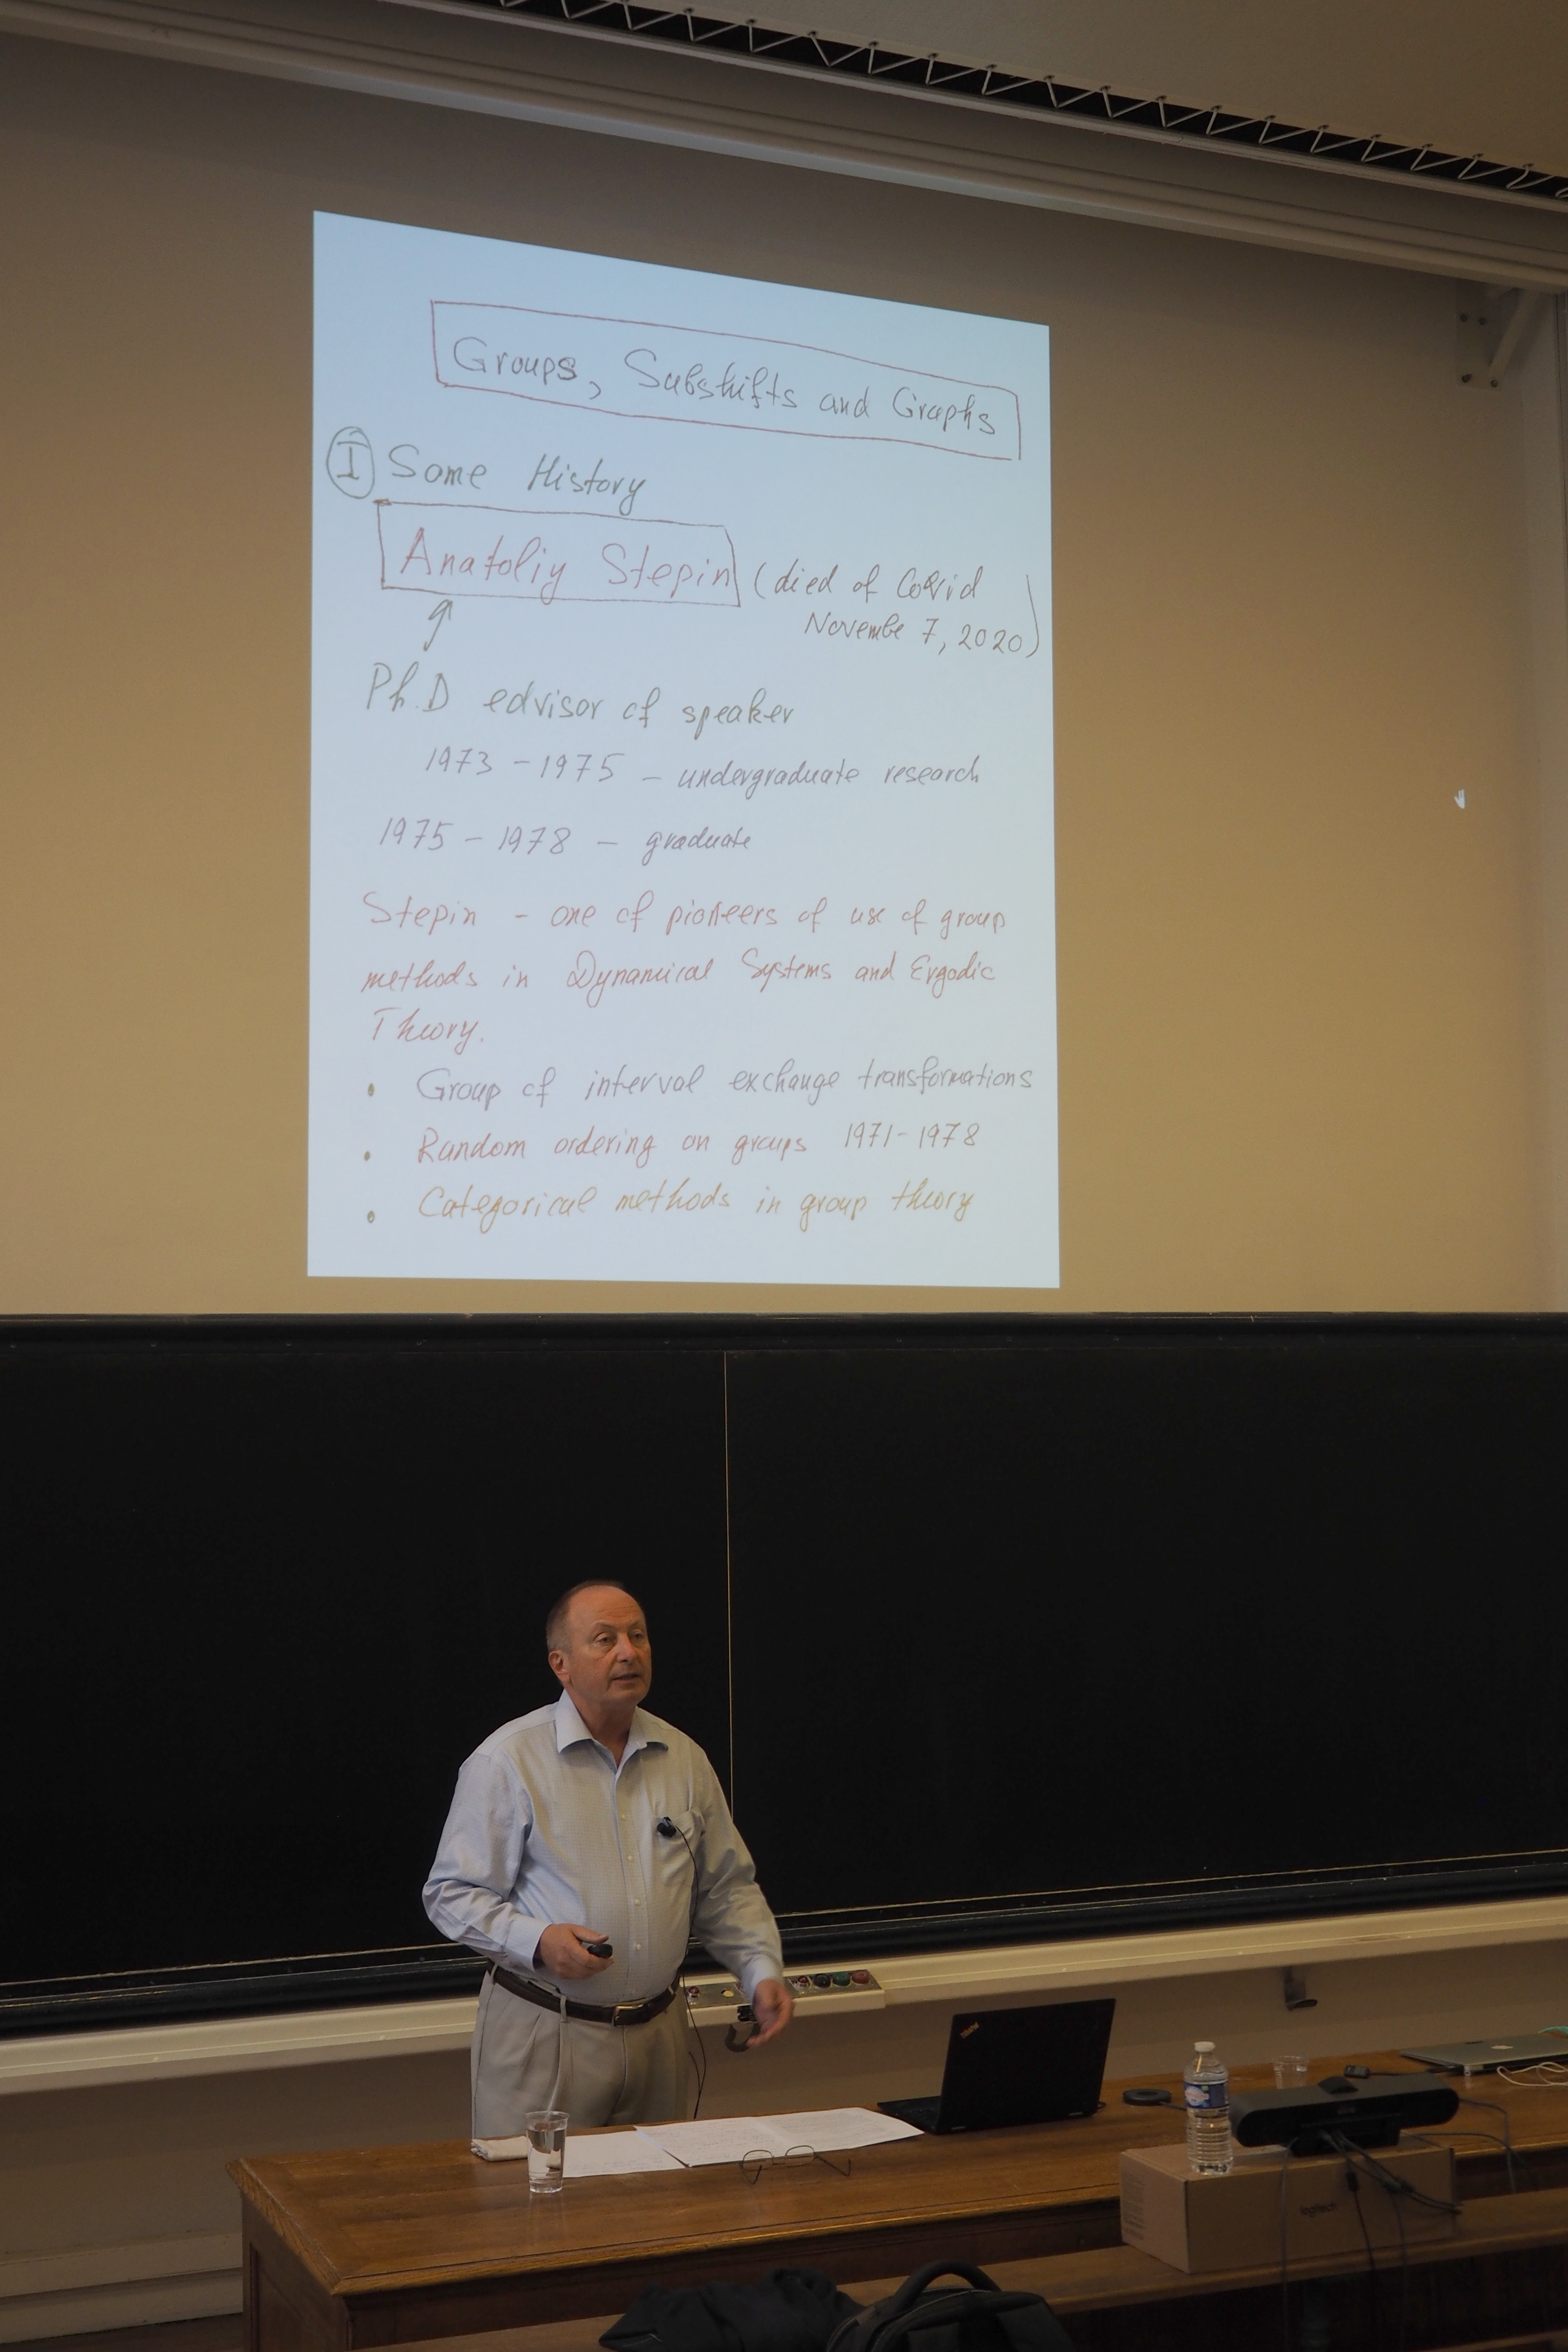 Groups, Subshifts and Graphs
I Some History
Anatoliy Stepin (died of Covid
Novembe 7, 2020)
Ph.D edvisor of speaker
1973 - 1975 - undergraduate research
1975 - 1978 - graduate
Stepin - one of pioneers of use of group
methods in Dynamical Systems and Ergodic
Theory.
• Group of interval exchange transformations
• Random ordering on groups 1971-1978
• Categorical methods in group theory
ThinkPad
logitech